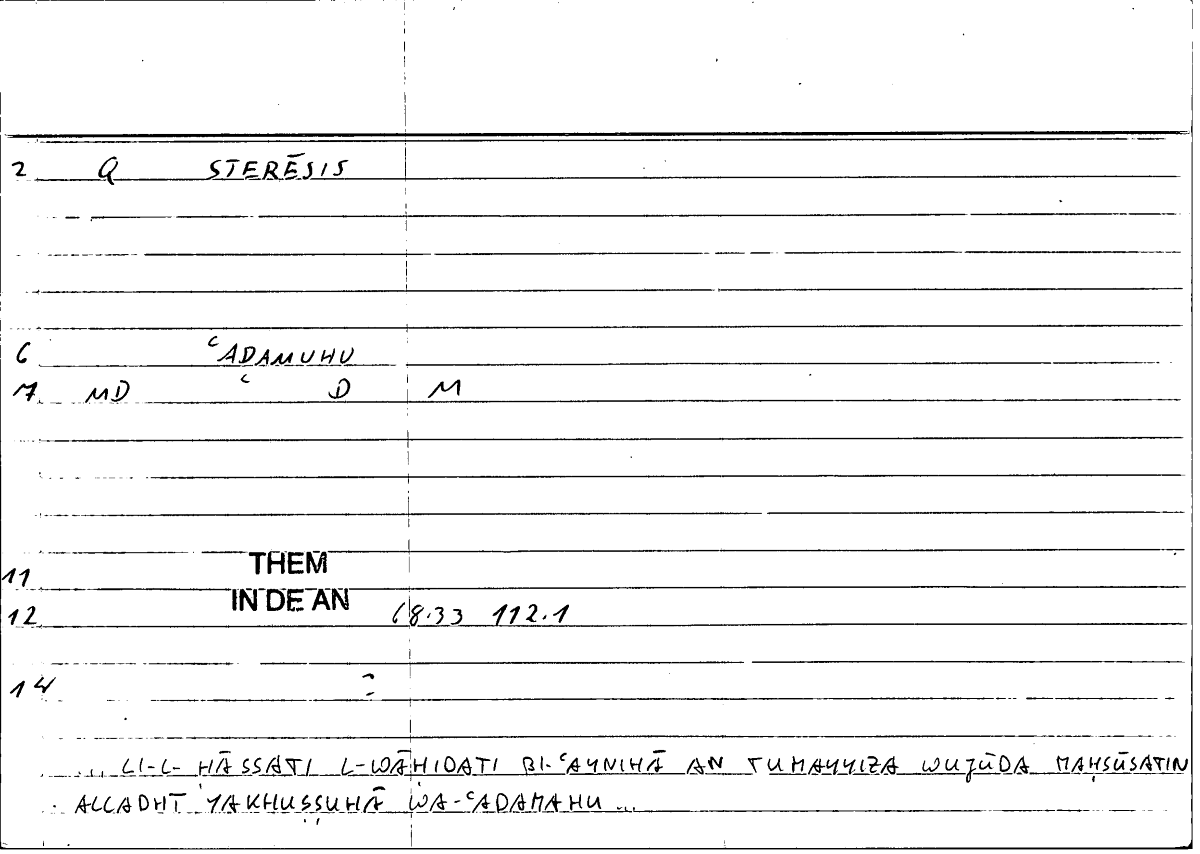 2 Q STERĒSIS
6 ʿADAMUHU
7 MD ʿ D M
11 THEM
12 IN DE AN 68.33 112.1
14 =
... LI-L- ḤĀSSATI L-WĀḤIDATI BI-ʿAYNIHĀ AN TUMAYYIZA WUJŪDA MAḤSŪSATIN
ALLADHĪ YAKHUṢṢUHĀ WA-ʿADAMAHU ...